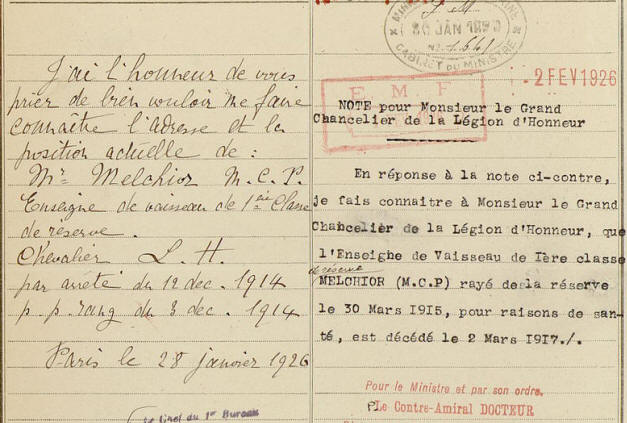 J'ai l'honneur de vous
prier de bien vouloir me faire
connaître l'adresse et la
position actuelle de :
Mr Melchior M. C. P.
Enseigne de vaisseau de 1ère Classe
de réserve.
Chevalier L. H.
par arrêté du 12 dec. 1914
p. p. rang du 3 dec. 1914
Paris le 28 janvier 1926
Le Chef du 1er Bureau
30 JAN 1926
CABINET DU MINISTRE
E M F
- 2 FEV 1926
NOTE pour Monsieur le Grand
Chancelier de la Légion d'Honneur
En réponse à la note ci-contre,
je fais connaitre à Monsieur le Grand
Chancelier de la Légion d'Honneur, que
l'Enseighe de Vaisseau de Ière classe
de réserve
MELCHIOR (M.C.P) rayé de la réserve
le 30 Mars 1915, pour raisons de san-
té, est décédé le 2 Mars 1917./.
Pour le Ministre et par son ordre.
Le Contre-Amiral DOCTEUR